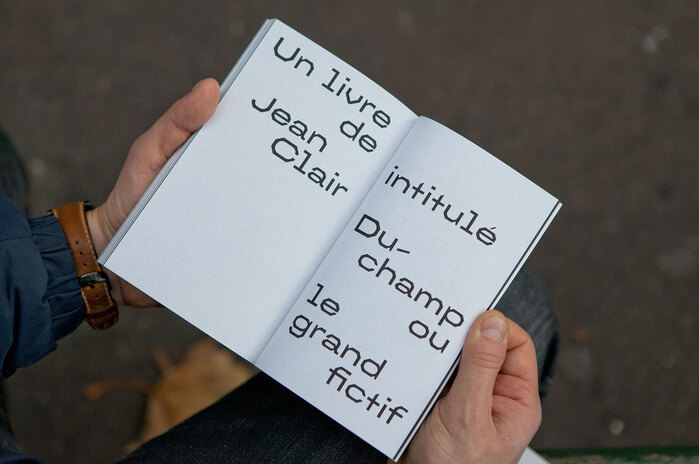 Un livre
de
Jean
Clair
intitulé
Du-
champ
ou
le
grand
fictif